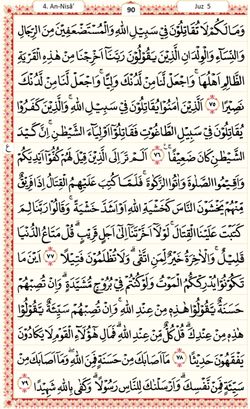 4. An-Nisâ' 90 Juz 5
وَمَا لَكُمْ لَا تُقَاتِلُوْنَ فِيْ سَبِيْلِ اللّٰهِ وَالْمُسْتَضْعَفِيْنَ مِنَ الرِّجَالِ
وَالنِّسَاۤءِ وَالْوِلْدَانِ الَّذِيْنَ يَقُوْلُوْنَ رَبَّنَآ اَخْرِجْنَا مِنْ هٰذِهِ الْقَرْيَةِ
الظَّالِمِ اَهْلُهَاۚ وَاجْعَلْ لَّنَا مِنْ لَّدُنْكَ وَلِيًّاۚ وَاجْعَلْ لَّنَا مِنْ لَّدُنْكَ
نَصِيْرًاۗ ٧٥ اَلَّذِيْنَ اٰمَنُوْا يُقَاتِلُوْنَ فِيْ سَبِيْلِ اللّٰهِۚ وَالَّذِيْنَ كَفَرُوْا
يُقَاتِلُوْنَ فِيْ سَبِيْلِ الطَّاغُوْتِ فَقَاتِلُوْٓا اَوْلِيَاۤءَ الشَّيْطٰنِۚ اِنَّ كَيْدَ
الشَّيْطٰنِ كَانَ ضَعِيْفًاۚ ٧٦ اَلَمْ تَرَ اِلَى الَّذِيْنَ قِيْلَ لَهُمْ كُفُّوْٓا اَيْدِيَكُمْ
وَاَقِيْمُوا الصَّلٰوةَ وَاٰتُوا الزَّكٰوةَۚ فَلَمَّا كُتِبَ عَلَيْهِمُ الْقِتَالُ اِذَا فَرِيْقٌ
مِّنْهُمْ يَخْشَوْنَ النَّاسَ كَخَشْيَةِ اللّٰهِ اَوْ اَشَدَّ خَشْيَةًۚ وَقَالُوْا رَبَّنَا لِمَ
كَتَبْتَ عَلَيْنَا الْقِتَالَۚ لَوْلَآ اَخَّرْتَنَآ اِلٰٓى اَجَلٍ قَرِيْبٍۗ قُلْ مَتَاعُ الدُّنْيَا
قَلِيْلٌۚ وَالْاٰخِرَةُ خَيْرٌ لِّمَنِ اتَّقٰىۗ وَلَا تُظْلَمُوْنَ فَتِيْلًا ٧٧ اَيْنَ مَا
تَكُوْنُوْا يُدْرِكْكُّمُ الْمَوْتُ وَلَوْ كُنْتُمْ فِيْ بُرُوْجٍ مُّشَيَّدَةٍۗ وَاِنْ تُصِبْهُمْ
حَسَنَةٌ يَّقُوْلُوْا هٰذِهٖ مِنْ عِنْدِ اللّٰهِۚ وَاِنْ تُصِبْهُمْ سَيِّئَةٌ يَّقُوْلُوْا
هٰذِهٖ مِنْ عِنْدِكَۗ قُلْ كُلٌّ مِّنْ عِنْدِ اللّٰهِۗ فَمَالِ هٰٓؤُلَاۤءِ الْقَوْمِ لَا يَكَادُوْنَ
يَفْقَهُوْنَ حَدِيْثًا ٧٨ مَآ اَصَابَكَ مِنْ حَسَنَةٍ فَمِنَ اللّٰهِۖ وَمَآ اَصَابَكَ مِنْ
سَيِّئَةٍ فَمِنْ نَّفْسِكَۗ وَاَرْسَلْنٰكَ لِلنَّاسِ رَسُوْلًاۗ وَكَفٰى بِاللّٰهِ شَهِيْدًا ٧٩